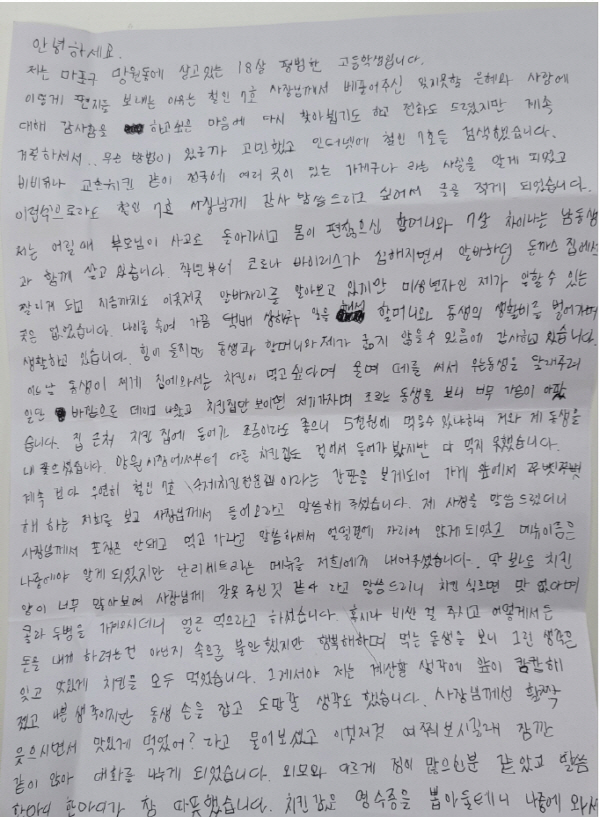 안녕하세요.
저는 마포구 망원동에 살고있는 18살 평범한 고등학생입니다.
이렇게 편지를 보내는 이유는 철인 7호 사장님께서 베풀어주신 잊지못할 은혜와 사랑에
대해 감사함을 하고싶은 마음에 다시 찾아뵙기도 하고 전화도 드렸지만 계속
거절하셔서.. 무슨 방법이 있을까 고민했고 인터넷에 철인 7호를 검색했습니다.
비비큐나 교촌치킨 같이 전국에 여러 곳이 있는 가게구나 라는 사실을 알게 되었고
이런식으로라도 철인 7호 사장님께 감사 말씀드리고 싶어서 글을 적게 되었습니다.
저는 어릴때 부모님이 사고로 돌아가시고 몸이 편찮으신 할머니와 7살 차이나는 남동생
과 함께 살고 있습니다. 작년부터 코로나 바이러스가 심해지면서 알바하던 돈까스 집에서
짤리게 되고 지금까지도 이곳저곳 알바자리를 알아보고 있지만 미성년자인 제가 일할 수 있는
곳은 없었습니다. 나이를 속여 가끔 택배 상하차 일을 해서 할머니와 동생의 생활비를 벌어가며
생활하고 있습니다. 힘이 들지만 동생과 할머니와 제가 굶지 않을수 있음에 감사하고 있습니다.
어느날 동생이 제게 집에와서는 치킨이 먹고싶다며 울며 떼를 써서 우는동생을 달래주려
일단 바깥으로 데리고 나왔고 치킨집만 보이면 저기가자며 조르는 동생을 보니 너무 가슴이 아팠
습니다. 집 근처 치킨 집에 들어가 조금이라도 좋으니 5천원에 먹을수 있냐하니 저와 제 동생을
내 쫓으셨습니다. 망원시장에서부터 다른 치킨집도 걸어서 들어가 봤지만 다 먹지 못했습니다.
계속 걷다 우연히 철인 7호 수제치킨전문점이라는 간판을 보게되어 가게 앞에서 쭈뼛쭈뼛
해 하는 저희를 보고 사장님께서 들어오라고 말씀해 주셨습니다. 제 사정을 말씀 드렸더니
사장님께서 포장은 안되고 먹고 가라고 말씀하셔서 얼떨결에 자리에 앉게되었고 메뉴이름은
나중에야 알게 되었지만 난리세트라는 메뉴를 저희에게 내어주셨습니다. 딱 보아도 치킨
양이 너무 많아보여 사장님께 잘못 주신것 같다 라고 말씀드리니 치킨 식으면 맛 없다며
콜라 두병을 가져오시더니 얼른 먹으라고 하셨습니다. 혹시나 비싼 걸 주시고 어떻게서든
돈을 내게 하려는건 아닌지 속으로 불안했지만 행복해하며 먹는 동생을 보니 그런 생각은
잊고 맛있게 치킨을 모두 먹었습니다. 그제서야 저는 계산할 생각에 앞이 캄캄해
졌고 나쁜 생각이지만 동생 손을 잡고 도망갈 생각도 했습니다. 사장님께선 활짝
웃으시면서 맛있게 먹었어? 라고 물어보셨고 이것저것 여쭤보시길래 잠깐
같이 앉아 대화를 나누게 되었습니다. 외모와 다르게 정이 많으신분 같았고 말씀
한마디 한마디가 참 따뜻했습니다. 치킨값은 영수증을 뽑아둘테니 나중에 와서